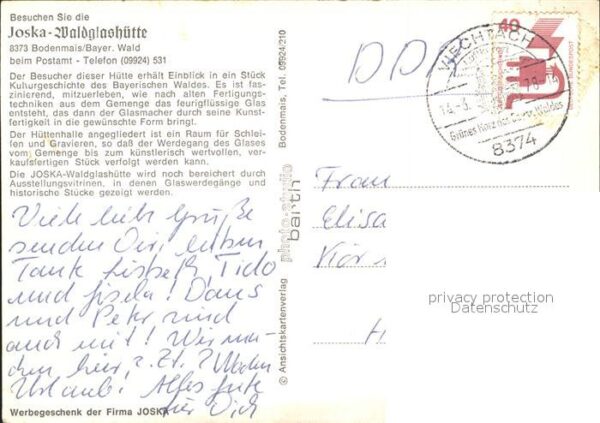 Besuchen Sie die
Joska-Waldglashütte
8373 Bodenmais/Bayer. Wald
beim Postamt - Telefon (09924) 531
Der Besucher dieser Hütte erhält Einblick in ein Stück
Kulturgeschichte des Bayerischen Waldes. Es ist fas-
zinierend, mitzuerleben, wie nach alten Fertigungs-
techniken aus dem Gemenge das feurigflüssige Glas
entsteht, das dann der Glasmacher durch seine Kunst-
fertigkeit in die gewünschte Form bringt.
Der Hüttenhalle angegliedert ist ein Raum für Schlei-
fen und Gravieren, so daß der Werdegang des Glases
vom Gemenge bis zum künstlerisch wertvollen, ver-
kaufsfertigen Stück verfolgt werden kann.
Die JOSKA-Waldglashütte wird noch bereichert durch
Ausstellungsvitrinen, in denen Glaswerdegänge und
historische Stücke gezeigt werden.
Viele liebe Grüße
senden Dir, liebe
Tante Lisbeth, Tido
und Gisela! Doris
und Peter sind
auch mit! Wir ma-
chen hier z. Zt. 2 Wochen
Urlaub! Alles Gute
für Dich
Werbegeschenk der Firma JOSKA
© Ansichtskartenverlag
photo-studio
barth
Bodenmais, Tel. 09924/210
DDR
40
DEUTSCHE BUNDESPOST
VIECHTACH
Grünes Herz des Bayer. Waldes
8374
Frau
Elisa
privacy protection
Datenschutz